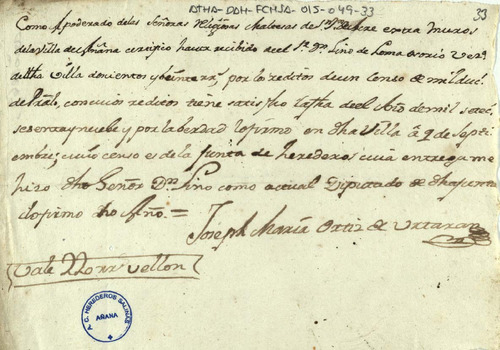 ATHA-DAH-FCHSA-015-049-33
33
Como Apoderado delas Señoras Religiosas Maltesas de Sn Juan extra muros
dela Villa de Añana certifico haver recibido de el Sr Dn Lino de Loma osorio vezo
de dha Villa doscientos y veinte rrs por los reditos de un Censo de mil duc
de Pral, con cuios reditos tiene satisfho la fha de el Año de mil setec
sesenta y nueve y por la verdad lo firmo en dha Villa à 9 de Septi
embre; cuio censo es de la Junta de herederos cuia entrega me
hizo dho Señor Dn Lino como actual Diputado de dha Junta
lo firmo dho Año.=
Joseph Maria Ortiz de
Vale 220 rrs vellon
C. HEREDEROS SALINAS
AÑANA